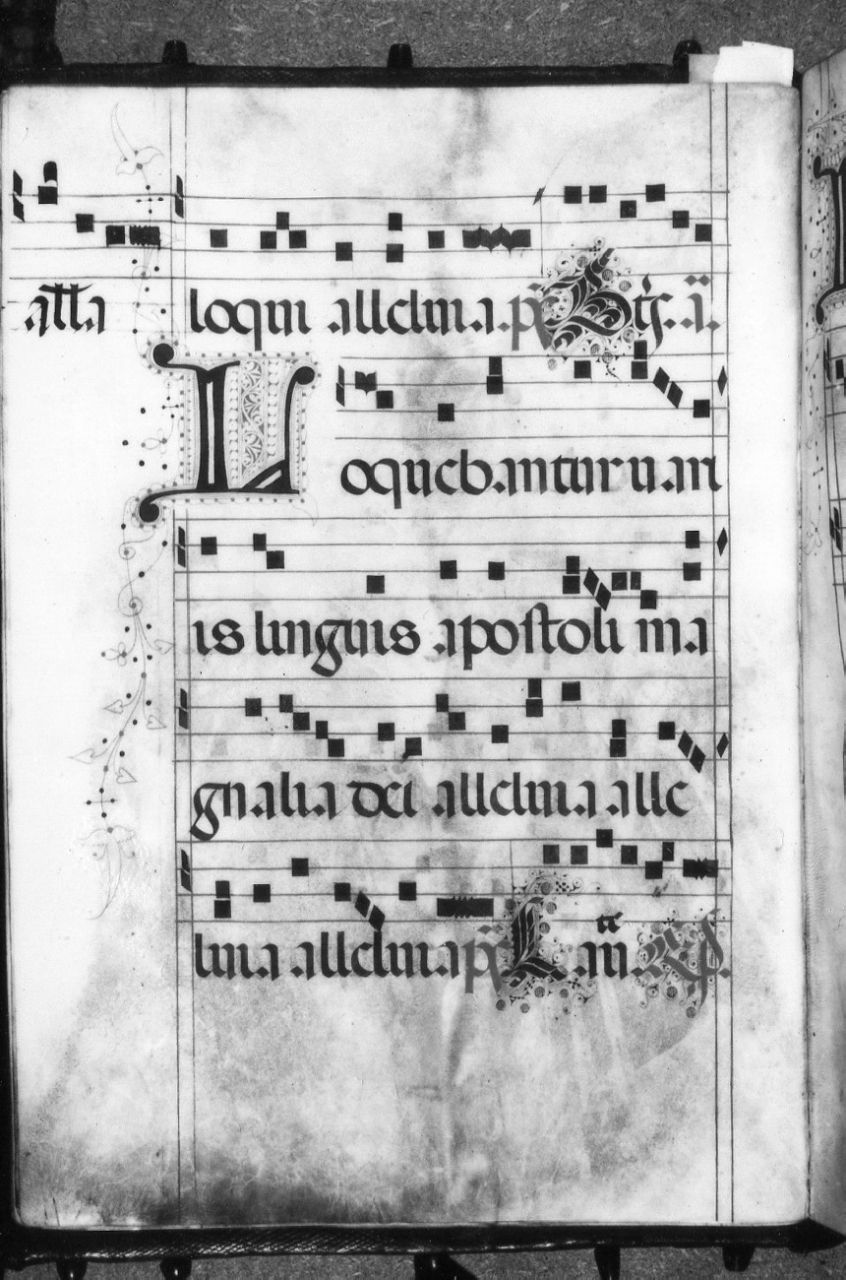 alla loqui alleluia. ps
Loquebantur uari
is linguis apostoli ma
gnalia dei alleluia alle
luia alleluia ps